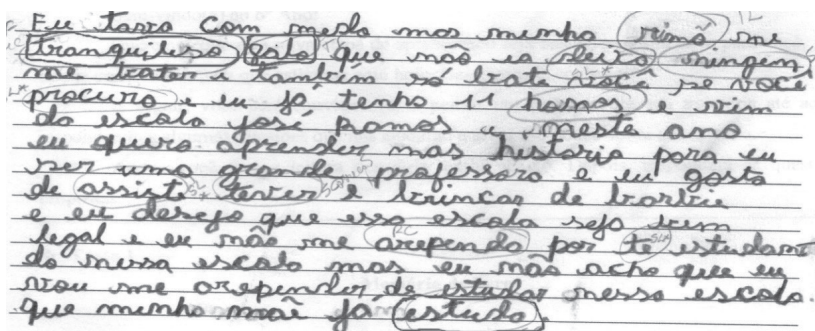 Eu tava com medo mas minha rimã me
tranquiliso falo que não ia deixa ningem
me bater e tambem só bate você se você
procura e eu já tenho 11 hanos e vim
da escola josé ramos e neste ano
eu quero aprender mas historia para eu
ser uma grande professora e eu gosta
de assisti tever e brincar de barbie
e eu desejo que essa escola seja bem
legal e eu não me arependa por te estudan
do nessa escola mas eu não acho que eu
vou me arepender de estudar nessa escola.
que minha mãe já estudo.